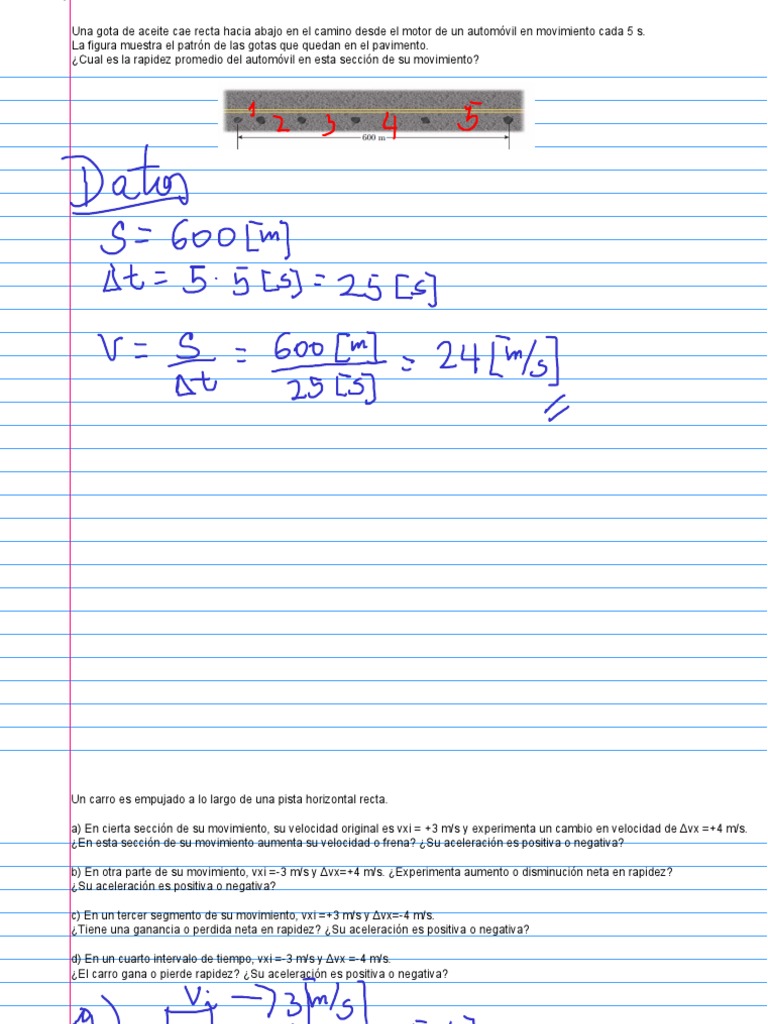 Una gota de aceite cae recta hacia abajo en el camino desde el motor de un automóvil en movimiento cada 5 s.
La figura muestra el patrón de las gotas que quedan en el pavimento.
¿Cual es la rapidez promedio del automóvil en esta sección de su movimiento?
1 2 3 4 5
600 m
Datos
S = 600 [m]
Δt = 5 · 5 [s] = 25 [s]
V = S/Δt = 600 [m]/25 [s] = 24 [m/s]
Un carro es empujado a lo largo de una pista horizontal recta.
a) En cierta sección de su movimiento, su velocidad original es vxi = +3 m/s y experimenta un cambio en velocidad de Δvx =+4 m/s.
¿En esta sección de su movimiento aumenta su velocidad o frena? ¿Su aceleración es positiva o negativa?
b) En otra parte de su movimiento, vxi =-3 m/s y Δvx=+4 m/s. ¿Experimenta aumento o disminución neta en rapidez?
¿Su aceleración es positiva o negativa?
c) En un tercer segmento de su movimiento, vxi =+3 m/s y Δvx=-4 m/s.
¿Tiene una ganancia o perdida neta en rapidez? ¿Su aceleración es positiva o negativa?
d) En un cuarto intervalo de tiempo, vxi =-3 m/s y Δvx =-4 m/s.
¿El carro gana o pierde rapidez? ¿Su aceleración es positiva o negativa?
a) Vi → 3 [m/s]